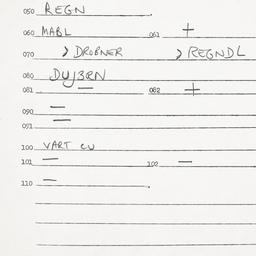 050 REGN
060 MABL 061 +
070 > DROBNER > REGNDL
080 DUJBRN
081 — 082 +
090 —
091 —
100 VART CU
101 — 102 —
110 —